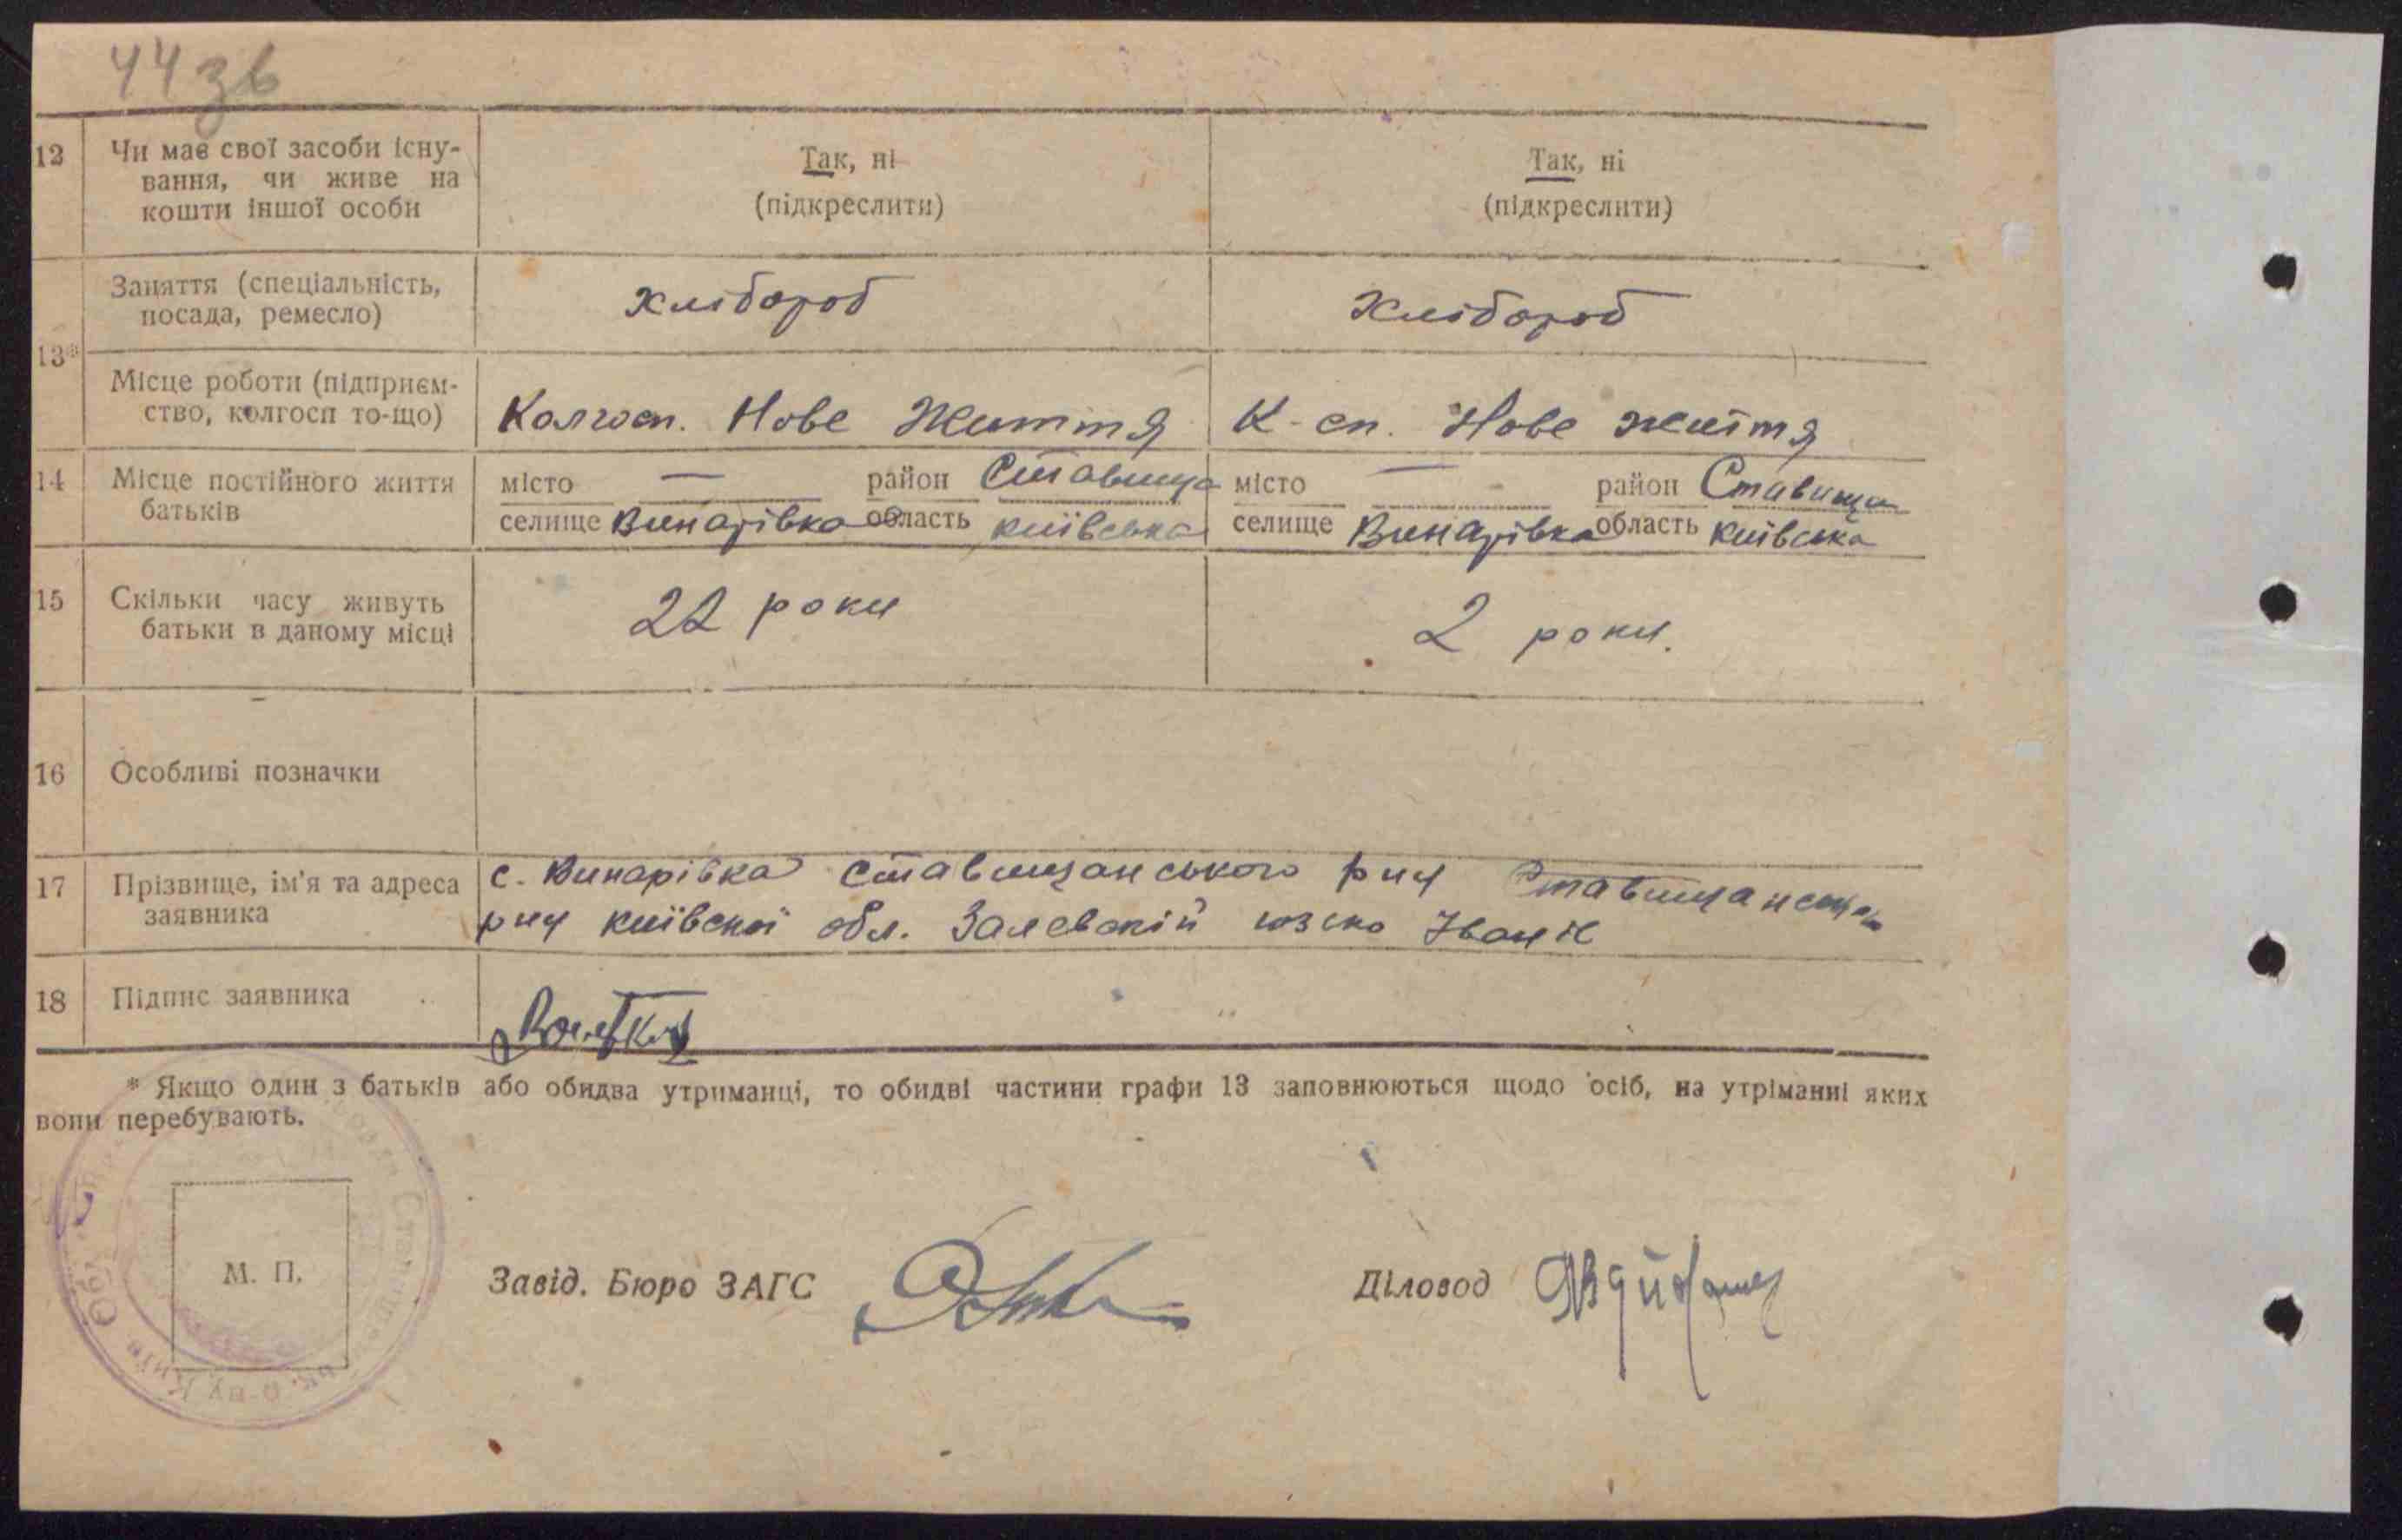 44 зв
12 Чи має свої засоби існу-
вання, чи живе на
кошти іншої особи
Так, ні
(підкреслити)
Так, ні
(підкреслити)
13*
Заняття (спеціальність,
посада, ремесло)
хлібороб
хлібороб
Місце роботи (підприєм-
ство, колгосп то-що)
Колгосп. Нове Життя
К-сп. Нове життя
14 Місце постійного життя
батьків
місто — район Ставища
селище Винарівка область київська
місто — район Ставища
селище Винарівка область київська
15 Скільки часу живуть
батьки в даному місці
22 роки
2 роки.
16 Особливі позначки
17 Прізвище, ім'я та адреса
заявника
с. Винарівка Ставищанського р-ну
р-ну київскої обл. Залевскій юзко
18 Підпис заявника
* Якщо один з батьків або обидва утриманці, то обидві частини графи 13 заповнюються щодо осіб, на утріманні яких
вони перебувають.
М. П.
Завід. Бюро ЗАГС
Діловод